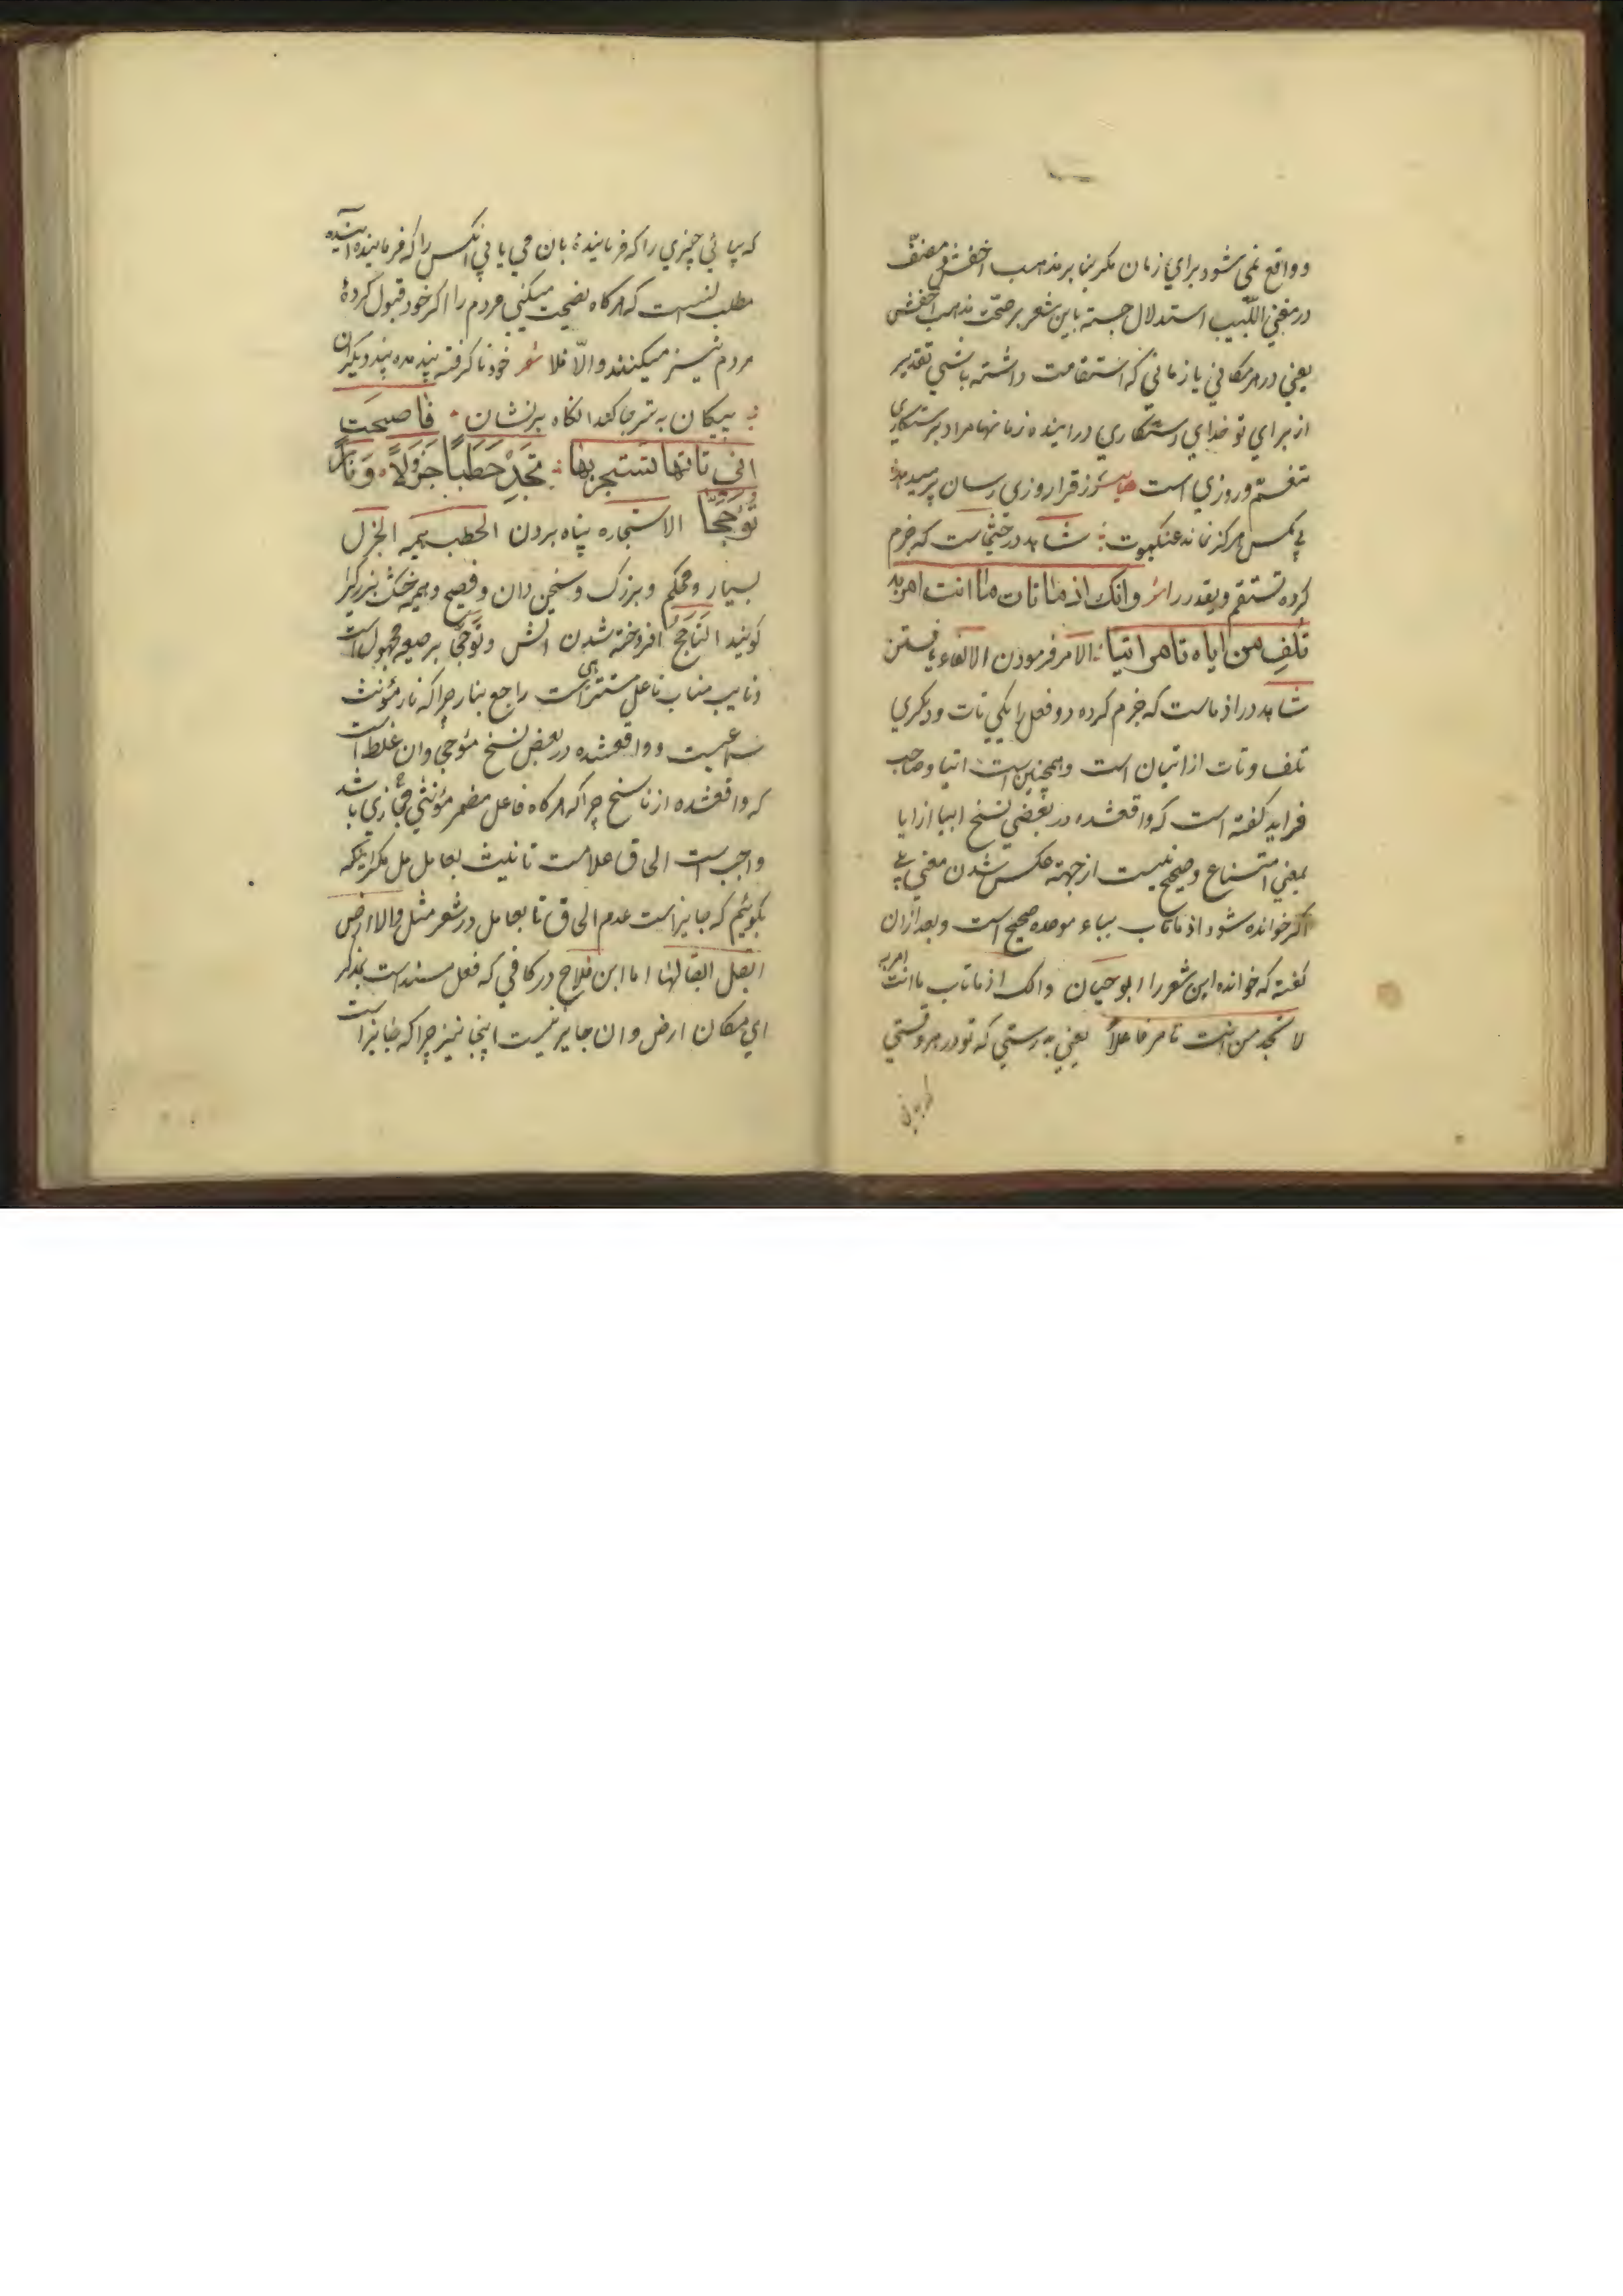 و واقع نمی شود برای زمان مکر بنا بر مذهب اخفش و مصنف
در مغنی اللبیب استدلال جسته باین شعر بر صحت مذهب اخفش
یعنی در هر مکانی یا زمانی که استقامت داشته باشی تقدیر
از برای تو خدای رستکاری در اینده زمانها مراد برستکاری
تنعم و روزی است رزق را روزی رسان پر میدهد
بی مکس هرکز نماند عنکبوت شاهد در حیثماست که جزم
کرده تستقم و یقدر را وانك اذ ما تات ما انت امر به
تلف من ایاه تامر اتیا الامر فرمودن الالفاء یافتن
شاهد در اذ ماست که جزم کرده دو فعل را یکی تات و دیکری
تلف و تات از اتیان است و همچنین است اتیا و صاحب
فراید کفته است که واقعشده در بعضی نسخ ابیا از ابا
بمعنی امتناع و صحیح نیست از جهته عکس شدن معنی بلی
اکر خوانده شود اذ ما تاب بباء موحده صحیح است و بعد از ان
کفته که خوانده این شعر را ابو حیان وانك اذ ما تاب ما انت امر به
لا تجد من انت تامر فاعلا یعنی به درستی که تو در هر وقتی
که بیائی چیزی را که فرمایندهٔ بان می یابی انکس را که فرماینده اینده
مطلب اینست که هرکاه نصیحت میکنی مردم را اکر خود قبول کردهٔ
مردم نیز میکنند والّا فلا شعر خود ناکرفته پند مده پند دیکران
پیکان به تیر جا کند انکاه بر نشان فاصبحت
انی تاتها تستجر بها تجد حطبا جزولا و نارا
تؤججا الاستجاره پناه بردن الحطب هیمه الجزل
بسیار و محکم و بزرک و سخن دان و فصیح و هیمه خشک بزرک را
کویند التاجج افروخته شدن اتش و تؤجج بر صیغه مجهول است
و نایب مناب فاعل هی مستتر است راجع بنار چرا که نار مؤنث
سماعیست و واقعشده در بعض نسخ مؤججی وان غلط است
که واقعشده از ناسخ چرا که هرکاه فاعل مضمر مؤنثی مجازی باشد
واجب است الحاق علامت تانیث بعامل مکر اینکه
بکوئیم که جایز است عدم الحاق تا بعامل در شعر مثل و لا ارض
ابقل ابقالها اما ابن فلاح در کافی که فعل مسند است بمذکر
ای مکان ارض وان جایز نیست اینجا نیز چرا که جایز است